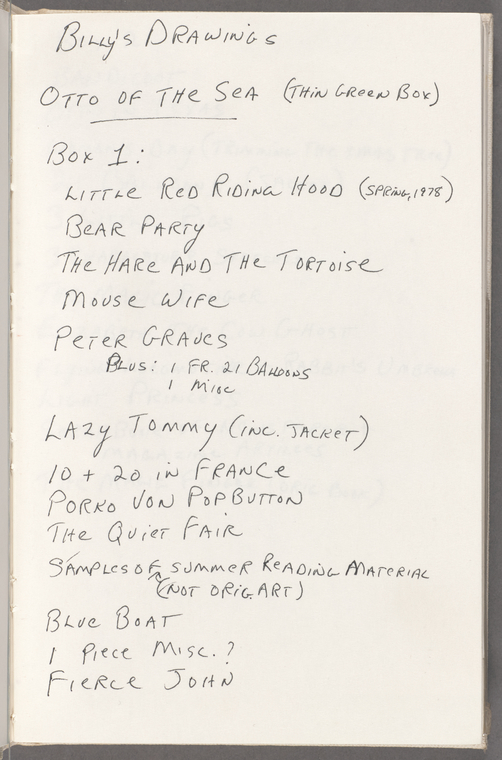 Billy's Drawings
Otto of the Sea (Thin Green Box)
Box 1:
Little Red Riding Hood (Spring, 1978)
Bear Party
The Hare and the Tortoise
Mouse Wife
Peter Graves
Plus: 1 fr. 21 Balloons
1 misc
Lazy Tommy (inc. jacket)
10 + 20 in France
Porko Von Popbutton
The Quiet Fair
Samples of summer reading material
(not orig. art)
Blue Boat
1 piece misc.?
Fierce John